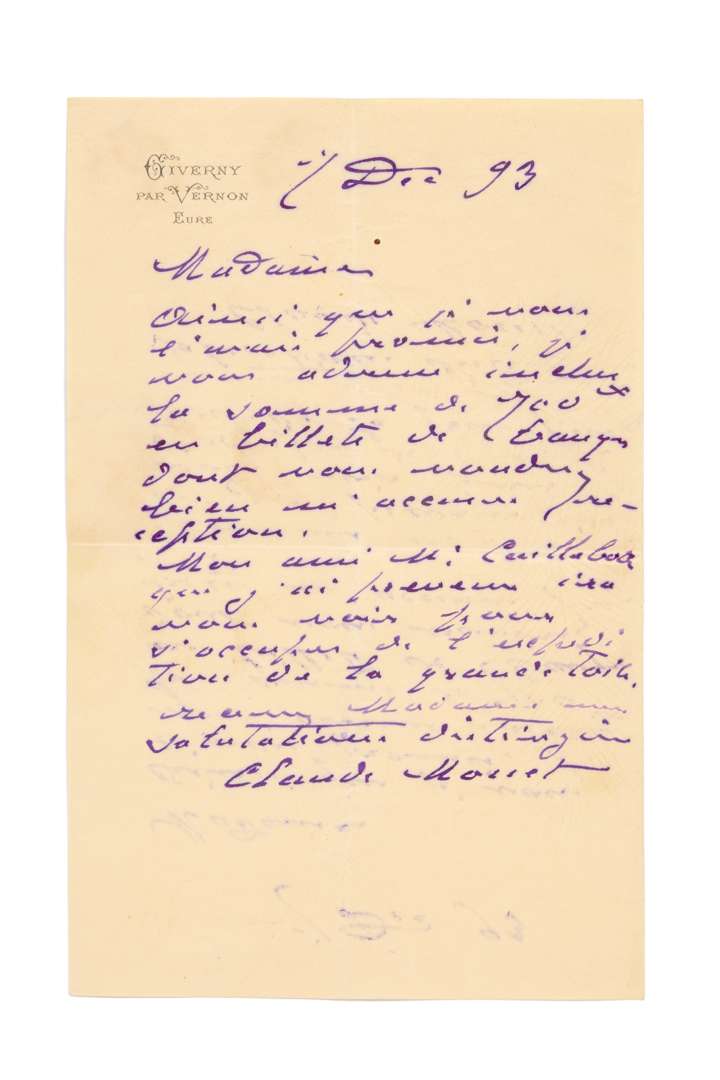 GIVERNY
PAR VERNON
EURE
7 Dec 93
Madame
Ainsi que je vous
l'avais promis, je
vous adresse inclus
la somme de 700
en billets de banque
dont vous voudrez
bien m'accuser ré-
ception.
Mon ami M. Caillebotte
que j'ai prévenu ira
vous voir pour
s'occuper de l'expédi
tion de la grande toile.
recevez Madame mes
salutations distinguées
Claude Monet